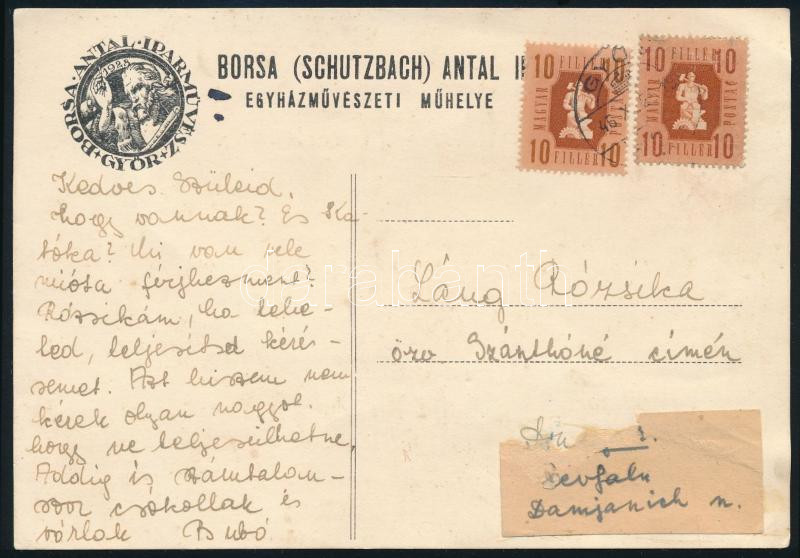 BORSA · ANTAL · IPARMŰVÉSZ + GYŐR +
1925
BORSA (SCHUTZBACH) ANTAL
EGYHÁZMŰVÉSZETI MŰHELYE
10 FILLÉR 10
MAGYAR
10 FILLÉR 10
10 FILLÉR 10
MAGYAR POSTA
10 FILLÉR 10
Kedves Szüleid,
hogy vannak? És Ka-
tóka? Mi van vele
mióta férjhezment?
Rózsikám, ha lehe-
ted, teljesítsd kéré-
semet. Azt hiszem nem
kérek olyan nagyot,
hogy ne teljesülhetne,
Addig is számtalan-
szor csókollak és
várlak Bubó
Láng Rózsika
orv. Szánthóné címén
Damjanich u.
darabanth.com